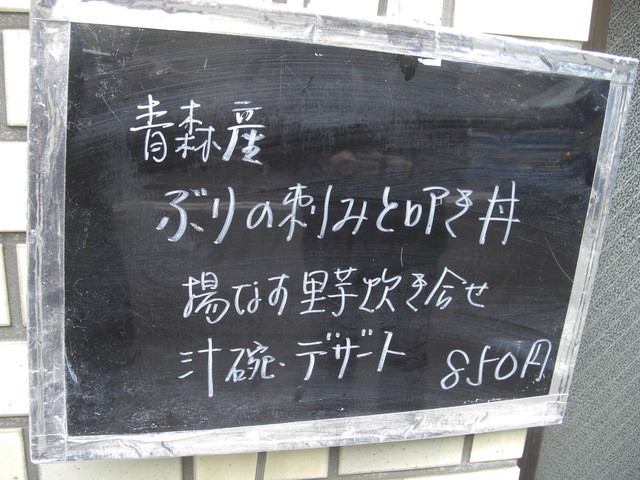 青森産
ぶりの刺みと叩き丼
揚なす里芋炊き合せ
汁碗・デザート 850円